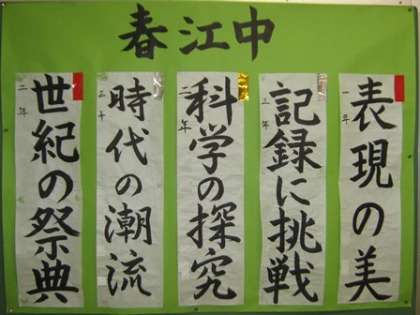 春江中
表現の美
一年
記録に挑戦
三年
科学の探究
二年
時代の潮流
世紀の祭典
二年